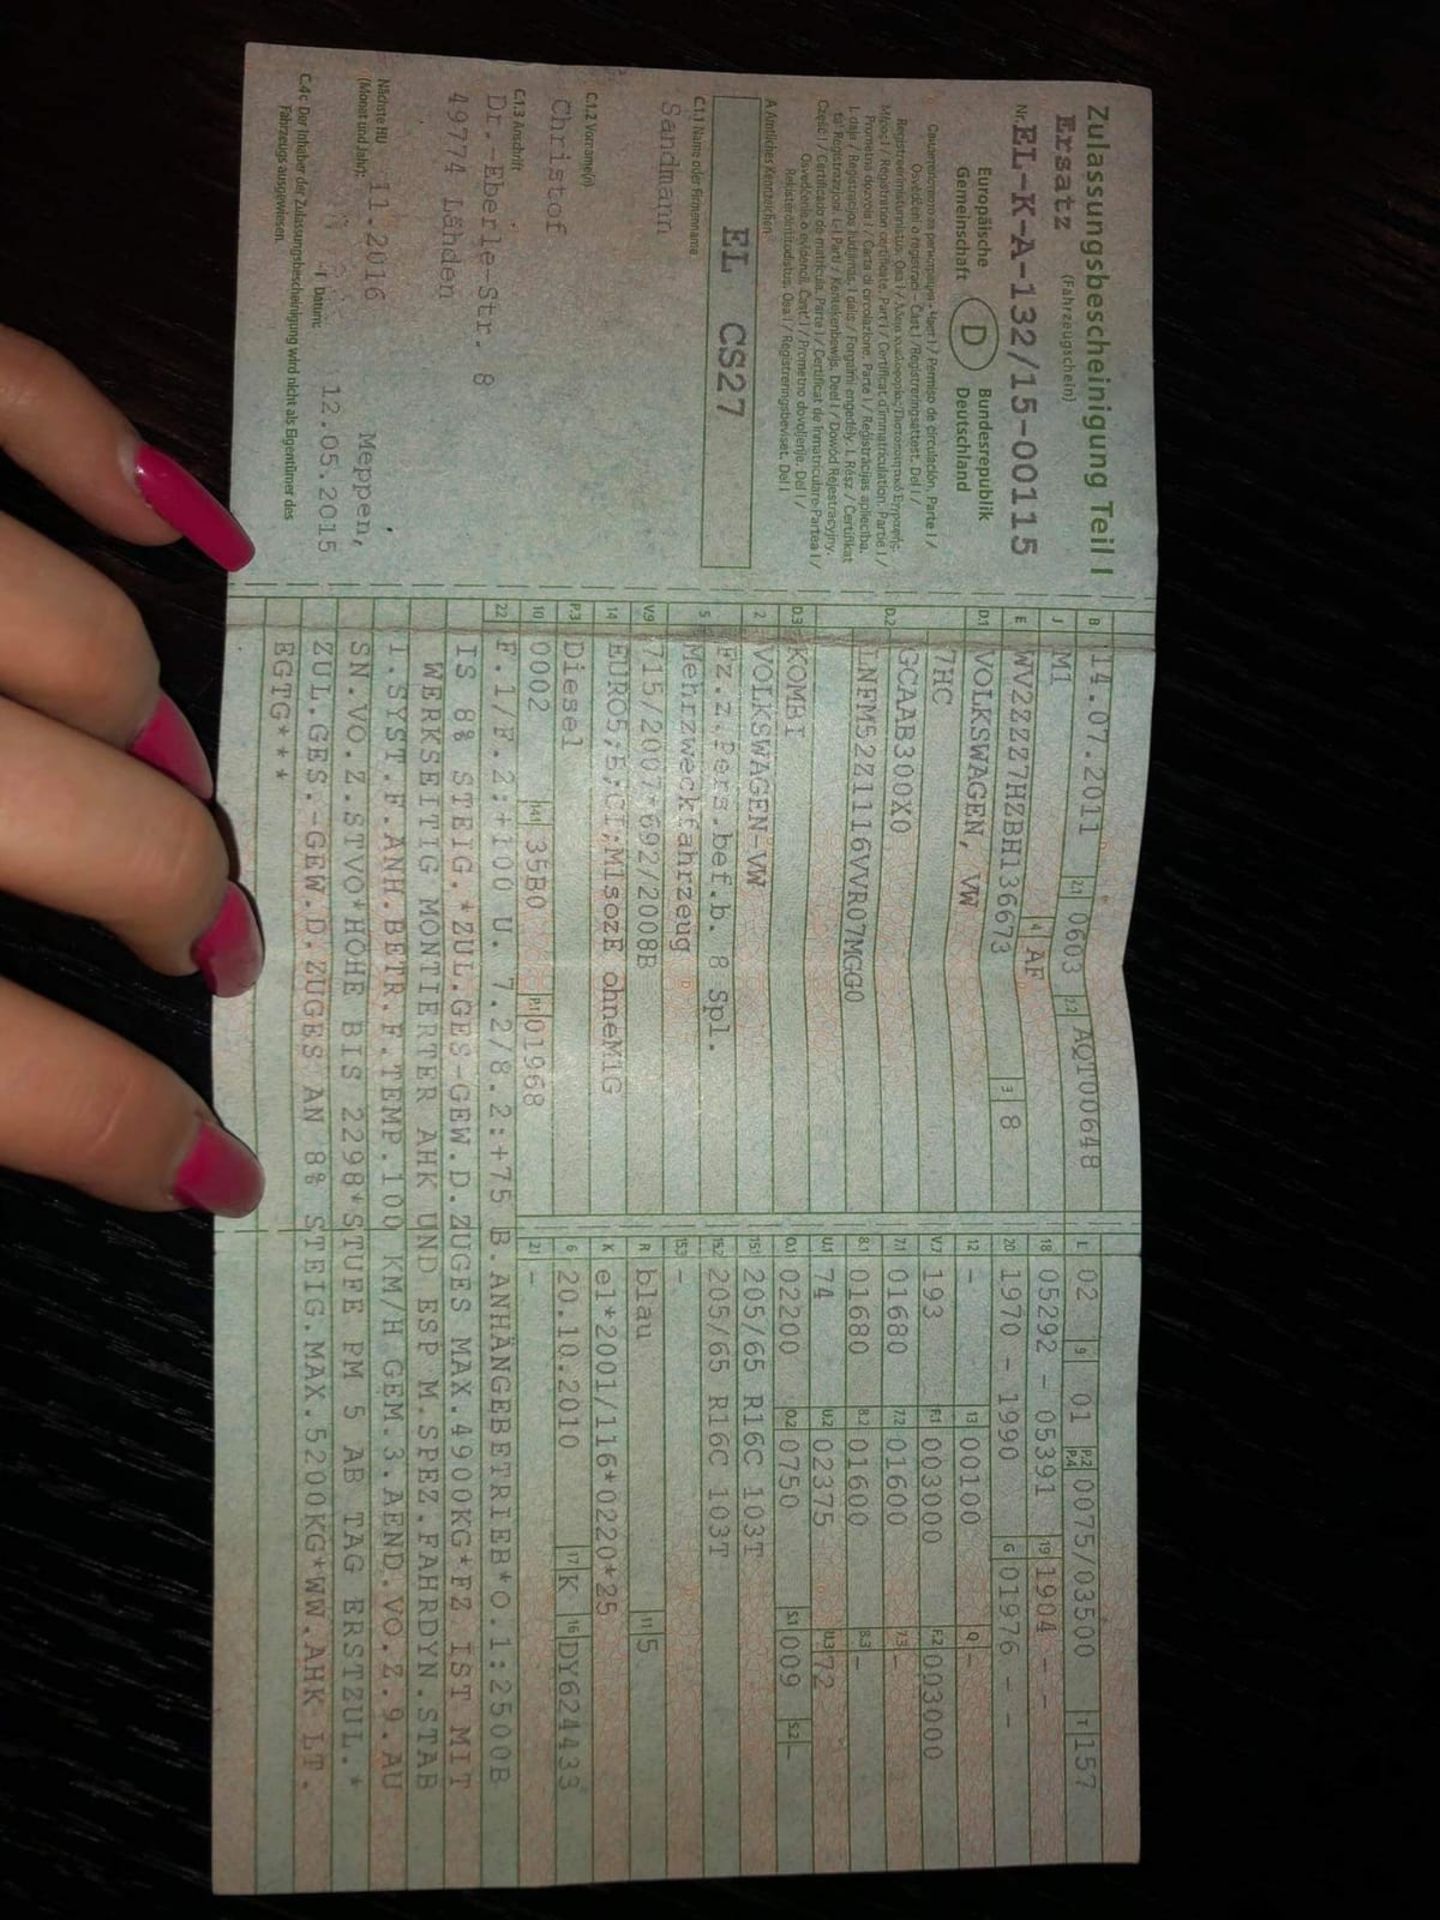 Zulassungsbescheinigung Teil I
Ersatz (Fahrzeugschein)
Nr. EL-K-A-132/15-00115
Europäische Gemeinschaft
D
Bundesrepublik Deutschland
Osvědčení o registraci – Část I / Registreringsattest. Del I /
Registration certificate. Part I / Certificat d'immatriculation. Partie I /
Prometna dozvola I / Carta di circolazione. Parte I / Reģistrācijas apliecība.
A Amtliches Kennzeichen
EL CS27
C.1.1 Name oder Firmenname
Sandmann
C.1.2 Vorname(n)
Christof
C.1.3 Anschrift
Dr.-Eberle-Str. 8
49774 Lähden
Nächste HU
(Monat und Jahr): 11.2016
Meppen,
Datum: 12.05.2015
C.4c Der Inhaber der Zulassungsbescheinigung wird nicht als Eigentümer des
Fahrzeugs ausgewiesen.
B 14.07.2011 2.1 0603 2.2 AQT00648
J M1 4 AF
E WV2ZZZ7HZBH136673 3 8
D.1 VOLKSWAGEN, VW
7HC
D.2 GCAAB300X0
LNFM52Z1116VVR07MGG0
D.3 KOMBI
2 VOLKSWAGEN-VW
5 Fz.z.Pers.bef.b. 8 Spl.
Mehrzweckfahrzeug
V.9 715/2007*692/2008B
14 EURO5;5;CI;M1sozE ohneM1G
P.3 Diesel
10 0002 14.1 35B0 P.1 01968
L 02 9 01 P.2 P.4 0075/03500 T 157
18 05292 - 05391 19 1904 - -
20 1970 - 1990 G 01976 - -
12 - 13 00100 Q -
V.7 193 F.1 003000 F.2 003000
7.1 01680 7.2 01600 7.3 -
8.1 01680 8.2 01600 8.3 -
U.1 74 U.2 02375 U.3 72
O.1 02200 O.2 0750 S.1 009 S.2 -
15.1 205/65 R16C 103T
15.2 205/65 R16C 103T
15.3 -
R blau 11 5
K e1*2001/116*0220*25
6 20.10.2010 17 K 16 DY624433
21 -
22 F.1/F.2:+100 U. 7.2/8.2:+75 B.ANHÄNGEBETRIEB*O.1:2500B
IS 8% STEIG.*ZUL.GES-GEW.D.ZUGES MAX.4900KG*FZ IST MIT
WERKSEITIG MONTIERTER AHK UND ESP M.SPEZ.FAHRDYN.STAB
I.SYST.F.ANH.BETR.F.TEMP.100 KM/H GEM.3.AEND.VO.Z.9.AU
SN.VO.Z.STVO*HÖHE BIS 2298*STUFE PM 5 AB TAG ERSTZUL.*
ZUL.GES.-GEW.D.ZUGES AN 8% STEIG.MAX.5200KG*WW.AHK LT.
EGTG***